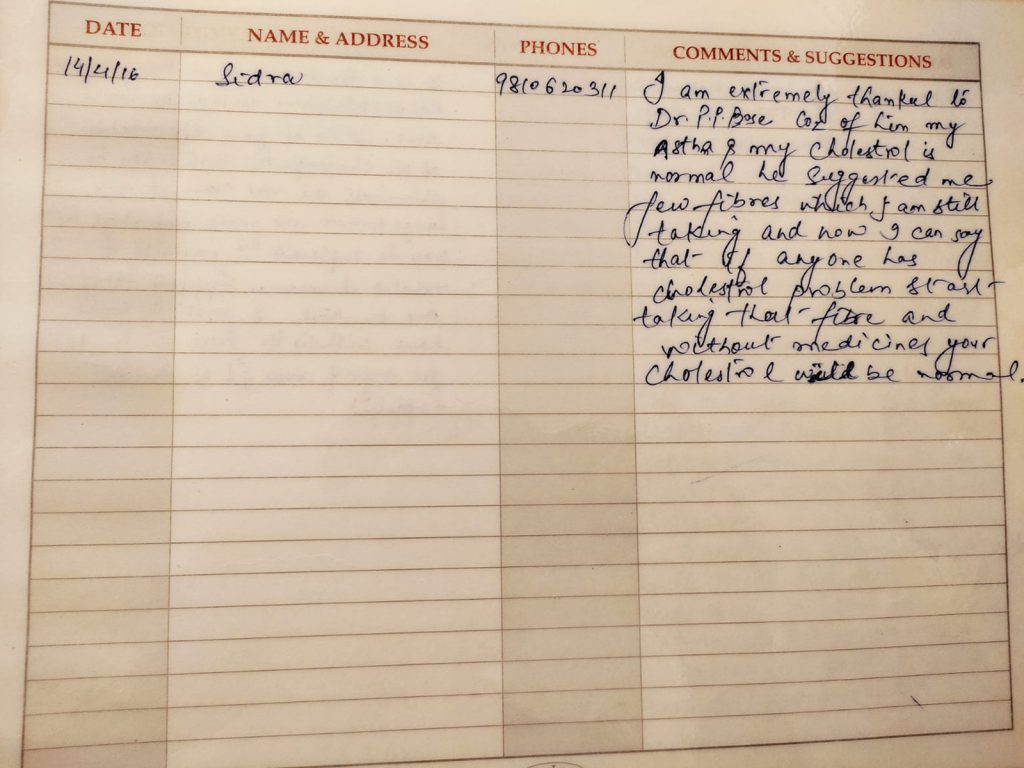 DATE NAME & ADDRESS PHONES COMMENTS & SUGGESTIONS
14/4/16 Sidra 9810620311 I am extremely thankul to
Dr. P.P. Bose Coz of him my
Astha & my Cholestrol is
normal he suggested me
few fibres which I am still
taking and now I can say
that if anyone has
cholestrol problem start
taking that fibre and
without medicines your
Cholestrol will be normal.